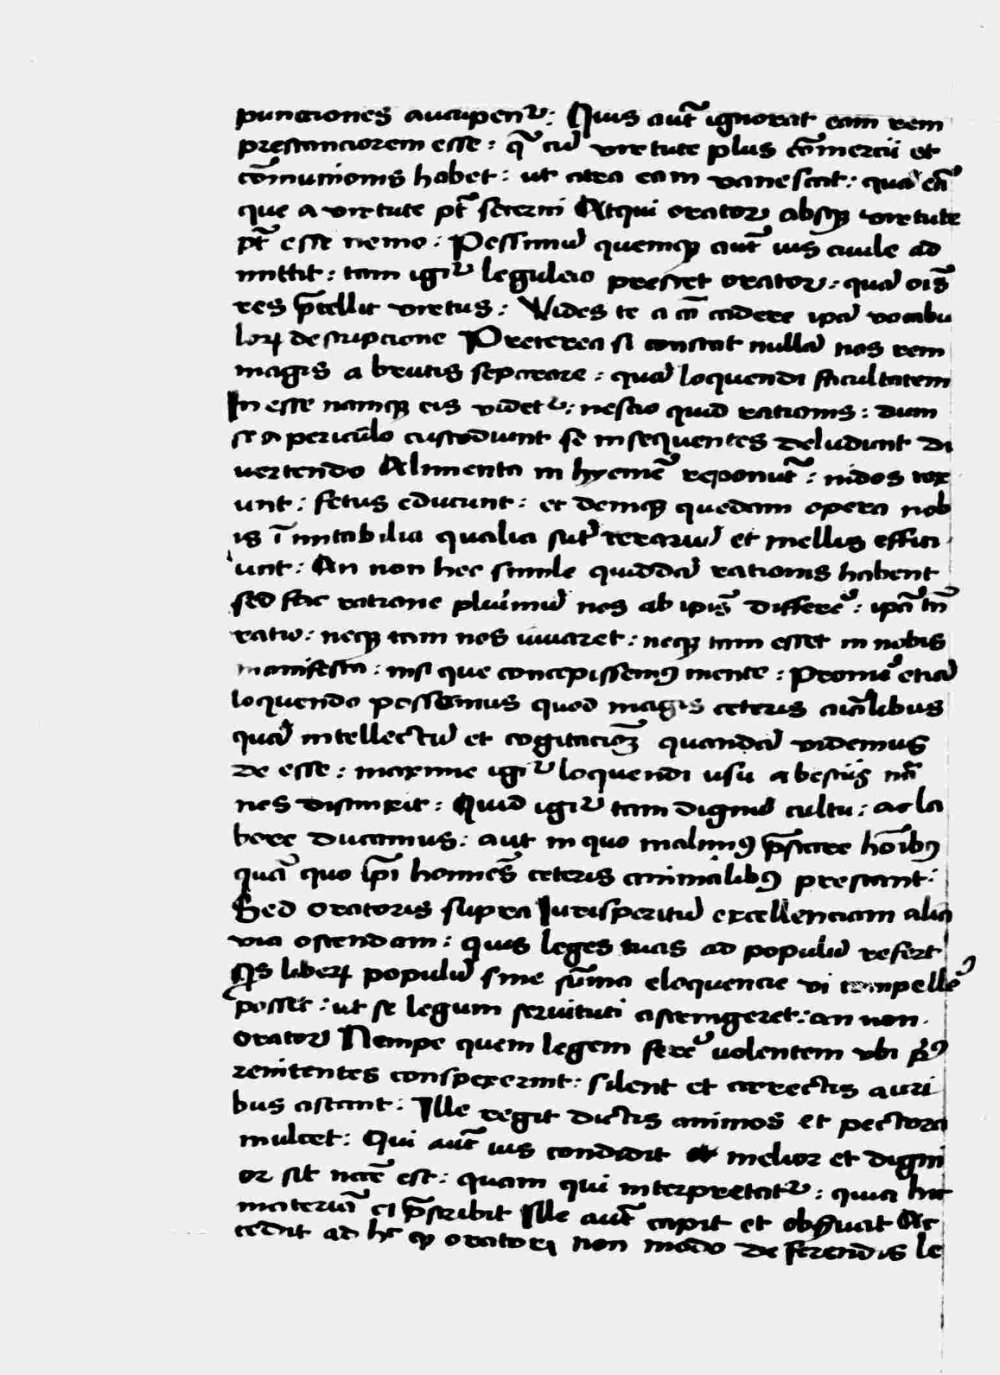 punctiones aucupent᷑: Quis aut̄ ignorat eam rem
prestanciorem esse: q̄ cū virtute plus cōmercii et
cōmunionis habet: ut citra eam vanescat: quā eā
que a virtute pt̄ seterni Atqui orator absqꝫ virtute
pt̄ esse nemo: Pessimū quemqꝫ aut̄ ius ciuile ad
mittit: tam igit᷑ leguleio prestet orator: quā oīs
res p̄cellit virtus: Vides te a cā cadere ipā vocabu
loꝝ descripcione Preterea si constat nulla nos rem
magis a brutis separare: quā loquendi facultatem
In esse namqꝫ eis videt᷑: nescio quid rationis: dum
se a periculo custodiunt se insequentes deludunt di
uertendo Alimenta in hyemē reponūt: nidos tex
unt: fetus educunt: et demqꝫ quedam opera nob
is īmitabilia qualia sūt cerarū et mellis effici
unt: An non hec simile quiddā rationis habent
sed fac ratione plurimū nos ab ipis̄ differre: ipā tn̄
ratio: neqꝫ tam nos iuuaret: neqꝫ tam esset in nobis
manifesta: nisi que concepissemꝰ mente: Promē etiā
loquendo possemus quod magis ceteris aiālibus
quā intellectū et cogitacionē quandā videmus
de esse: maxime igit᷑ loquendi usu a bestiis nā
nes distinxit: Quid igit᷑ tam dignū cultu: ac la
bore ducamus: aut in quo malimꝰ p̄stare hōibꝰ
quā quo ip̄i homines ceteris animalibꝰ prestant:
Sed oratoris supra Jurisperitū excellenciam alia
via ostendam: quis leges tuas ad populū refert
Qis liberꝝ populū sine sūma eloquencie vi compelle᷑
posset: ut se legum seruituti astringeret: an non
orator Nempe quem legem ferre uolentem ubi p̄ꝰ
renitentes conspexerint: silent et arrectis auri
bus astant: Ille regit dictis animos et pectora
mulcet: Qui aut̄ ius condidit melior et digni
or sit nc̄e est: quam qui interpretat᷑: quia hic
materiā ei p̄scribit Ille aut̄ capit et obseruat Ac
cedit ad hc̄ ꝙ oratori non modo de ferendis le